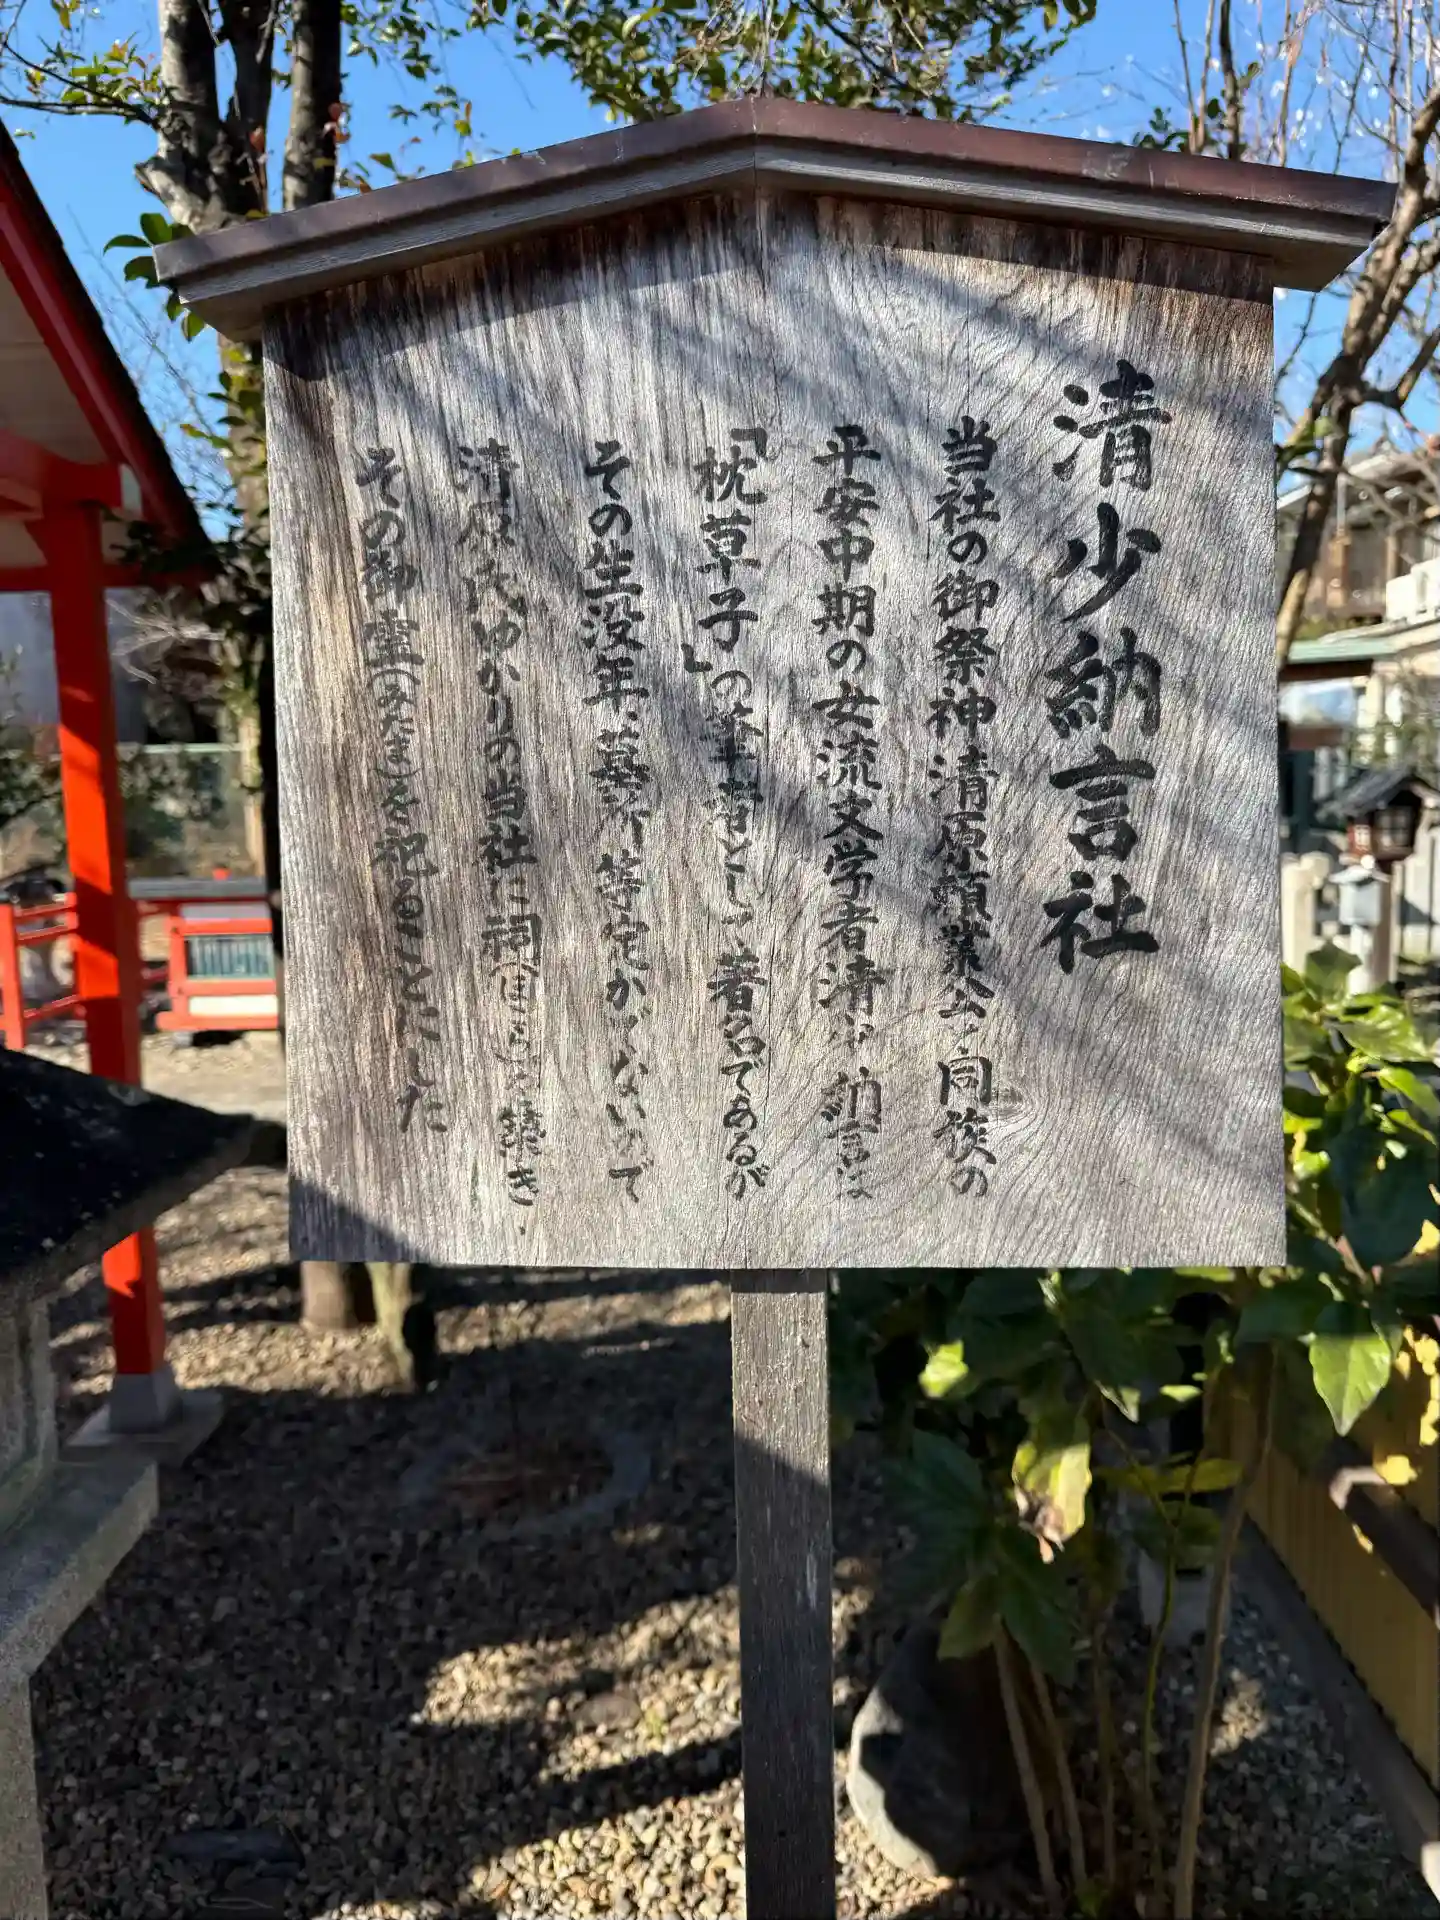 清少納言社
当社の御祭神清原頼業公ノ同族の
平安中期の女流文学者清少納言は
「枕草子」の筆者として著名であるが
その生没年、墓所等定かでないので
清原氏ゆかりの当社に祠(ほこら)を築き、
その御霊(みたま)を祀ることにした